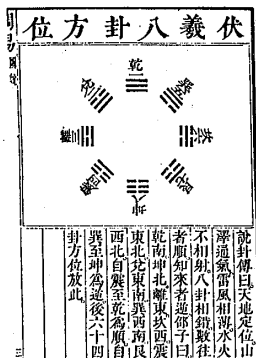 伏羲八卦方位
乾
巽
坎
艮
坤
震
離
兌
說卦傳曰天地定位山
澤通氣雷風相薄水火
不相射八卦相錯數往
者順知來者逆邵子曰
乾南坤北離東坎西震
東北兌東南巽西南艮
西北自震至乾為順自
巽至坤為逆後六十四
卦方位放此
周易
三